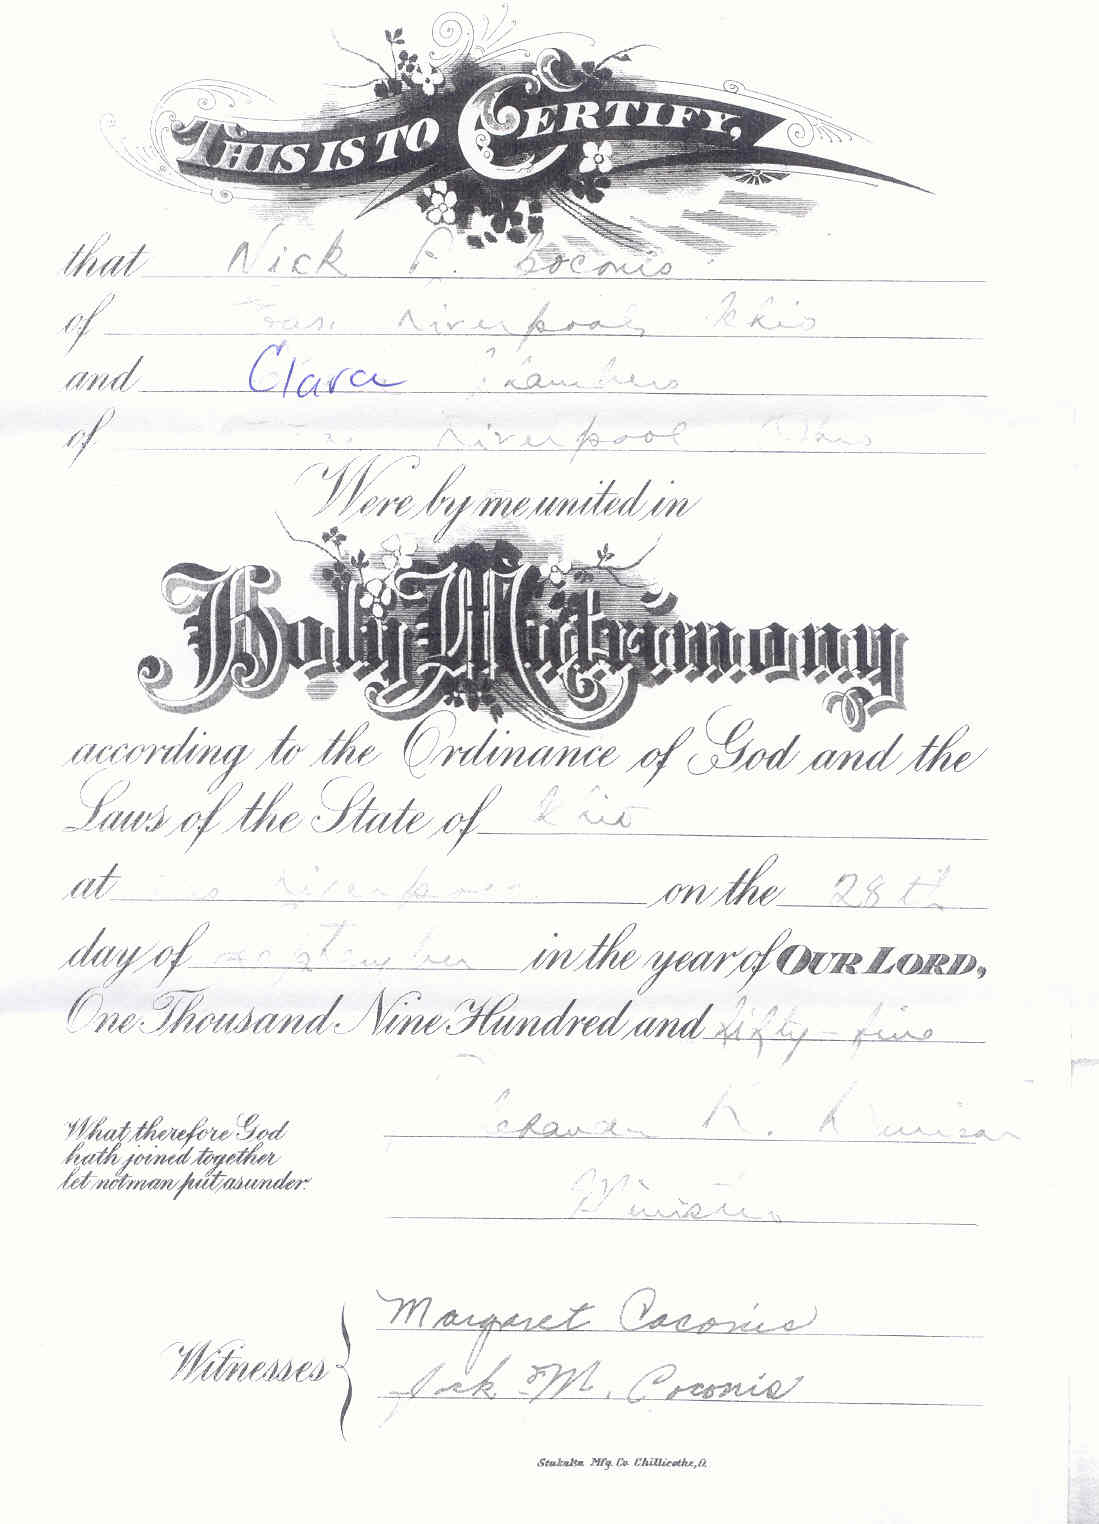 THIS IS TO CERTIFY,
that Nick A. Coconis
of East Liverpool, Ohio
and Clara Chambers
of East Liverpool Ohio
Were by me united in
Holy Matrimony
according to the Ordinance of God and the
Laws of the State of Ohio
at Liverpool on the 28th
day of September in the year of OUR LORD,
One Thousand Nine Hundred and fifty-five
What therefore God
hath joined together
let not man put asunder.
K.
Minister
Witnesses
Margaret Coconis
Jack M. Coconis
Mfg. Co. Chillicothe, O.